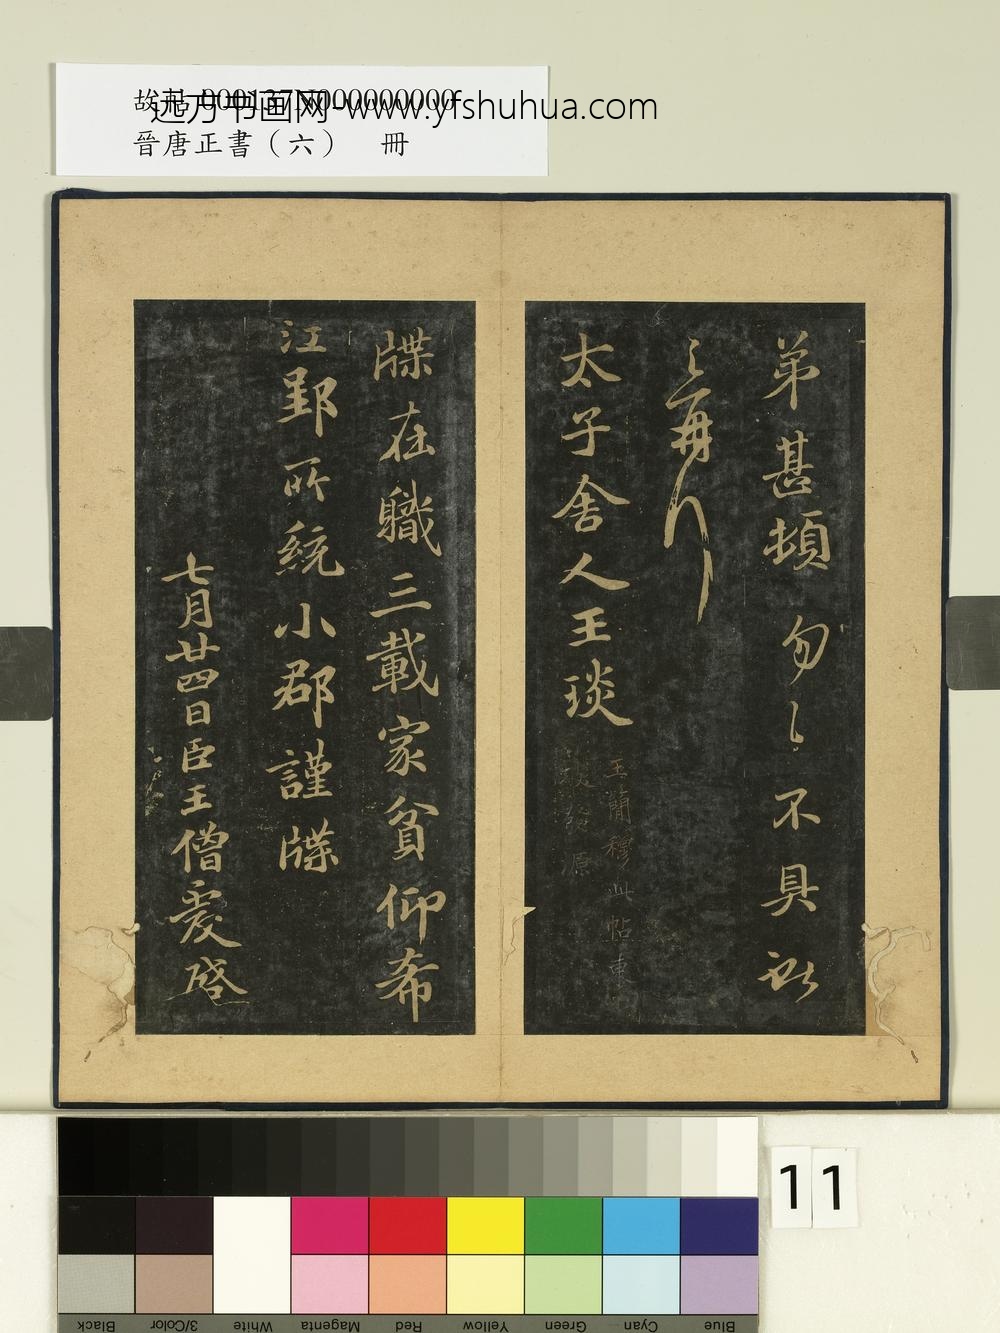 故帖 000137N000000000
远方书画网-www.yfshuhua.com
晉唐正書（六） 冊
弟甚頓勿〻不具
再行
太子舍人王琰
王簡穆此帖東
原
牒在職三載家貧仰希
江郢所統小郡謹牒
七月廿四日臣王僧虔啓
11
Black
3/Color
White
Magenta
Red
Yellow
Green
Cyan
Blue